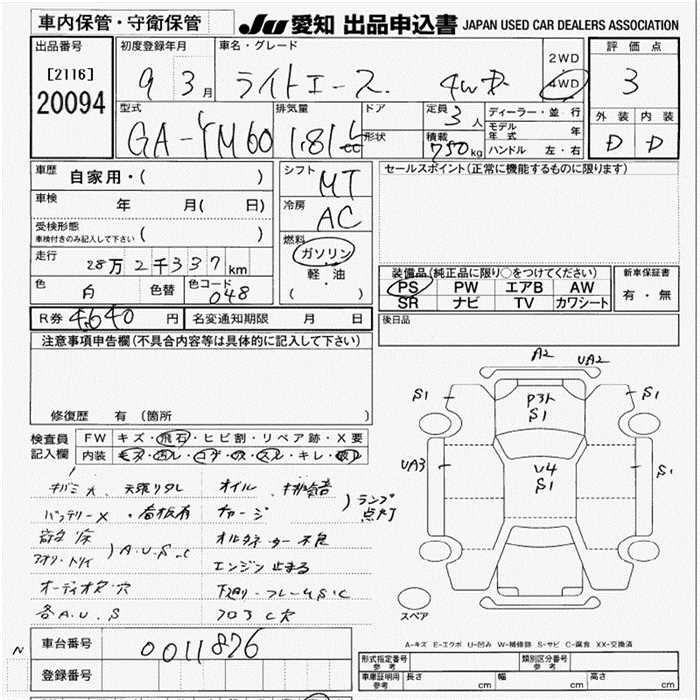 車内保管・守衛保管
JU 愛知 出品申込書 JAPAN USED CAR DEALERS ASSOCIATION
出品番号 初度登録年月 車名・グレード 2WD 評価点
[2116] 9 3月 ライトエース 4WD 3
20094
型式 排気量 ドア 定員 ディーラー・並行 外装 内装
GA-YM60 1.81 ℓ cc 形状 3人 モデル年式 年 D D
積載 750kg ハンドル 左・右
車歴 自家用・( ) シフト MT セールスポイント(正常に機能するものに限ります)
車検 年 月( 日) 冷房 AC
受検形態 車検付きのみ記入して下さい ( ) 燃料 ガソリン
走行 28万2千337km 軽・油 装備品(純正品に限り〇をつけてください) 新車保証書
( ・ ) PS PW エアB AW 有・無
色 白 色替 色コード 048 SR ナビ TV カワシート
R券 4,640円 名変通知期限 月 日 後日品
注意事項申告欄(不具合内容等は具体的に記入して下さい)
A2 UA2
S1 P3ト S1 S1
修復歴 有(箇所 )
検査員記入欄 FW キズ・飛石・ヒビ割・リペア跡・X要
内装 キズ・汚レ・コゲ・穴・スレ・キレ・破レ
UA3 U4 S1 S1
天張り多し オイル ランプ点灯
バッテリーX ・看板有 チャージ
A.U.S.C オルタネーター不良
エンジン止まる
下廻り・フレームS・C
各A.U.S フロアC穴
スペア
A-キズ E-エクボ U-凹み W-補修跡 S-サビ C-腐食 XX-交換済
N 車台番号 0011876
登録番号 形式指定番号 参考 類別区分番号 参考
車庫証明用 参考 長さ cm 幅 cm 高さ cm